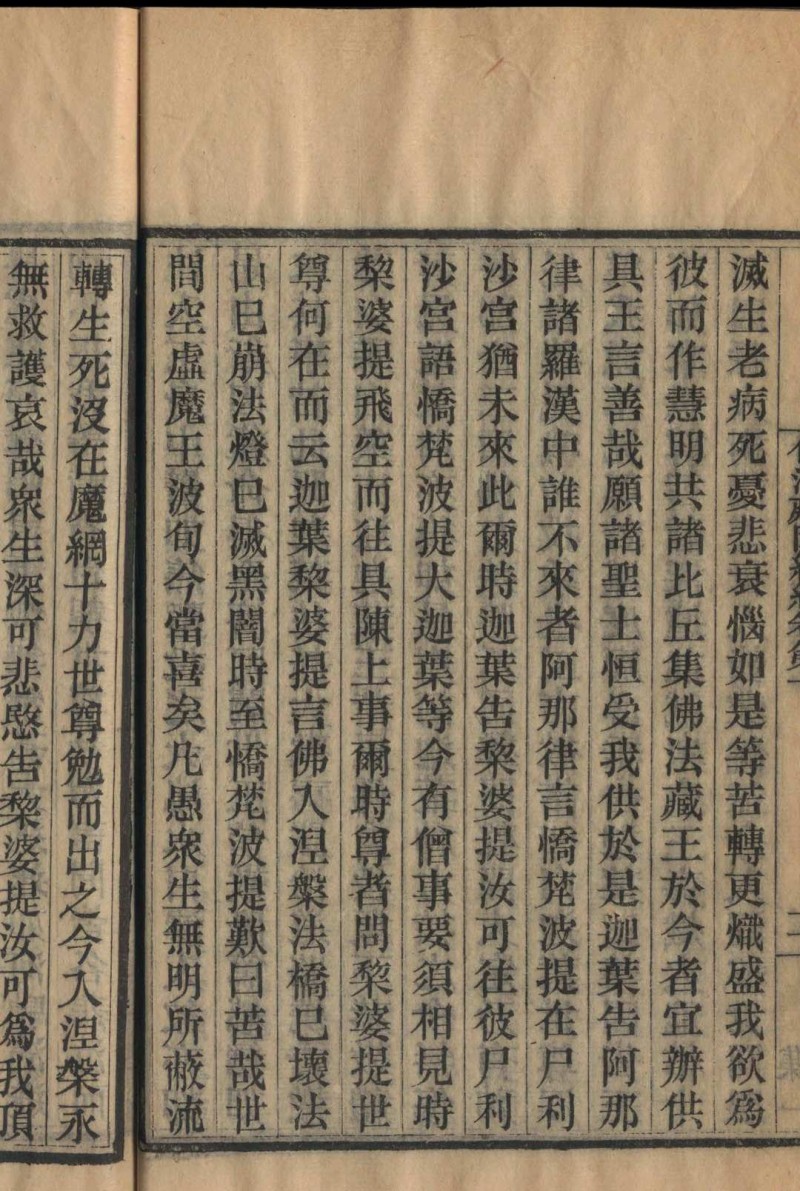 滅生老病死憂悲衰惱如是等苦轉更熾盛我欲爲
彼而作慧明共諸比丘集佛法藏王於今者宜辦供
具王言善哉願諸聖士恒受我供於是迦葉告阿那
律諸羅漢中誰不來者阿那律言憍梵波提在尸利
沙宮猶未來此爾時迦葉告黎婆提汝可往彼尸利
沙宮語憍梵波提大迦葉等今有僧事要須相見時
黎婆提飛空而往具陳上事爾時尊者問黎婆提世
尊何在而云迦葉黎婆提言佛入涅槃法橋已壞法
山已崩法燈已滅黑闇時至憍梵波提歎曰苦哉世
間空虛魔王波旬今當喜矣凡愚衆生無明所蔽流
轉生死沒在魔網十力世尊勉而出之今入涅槃永
無救護哀哉衆生深可悲愍告黎婆提汝可爲我頂